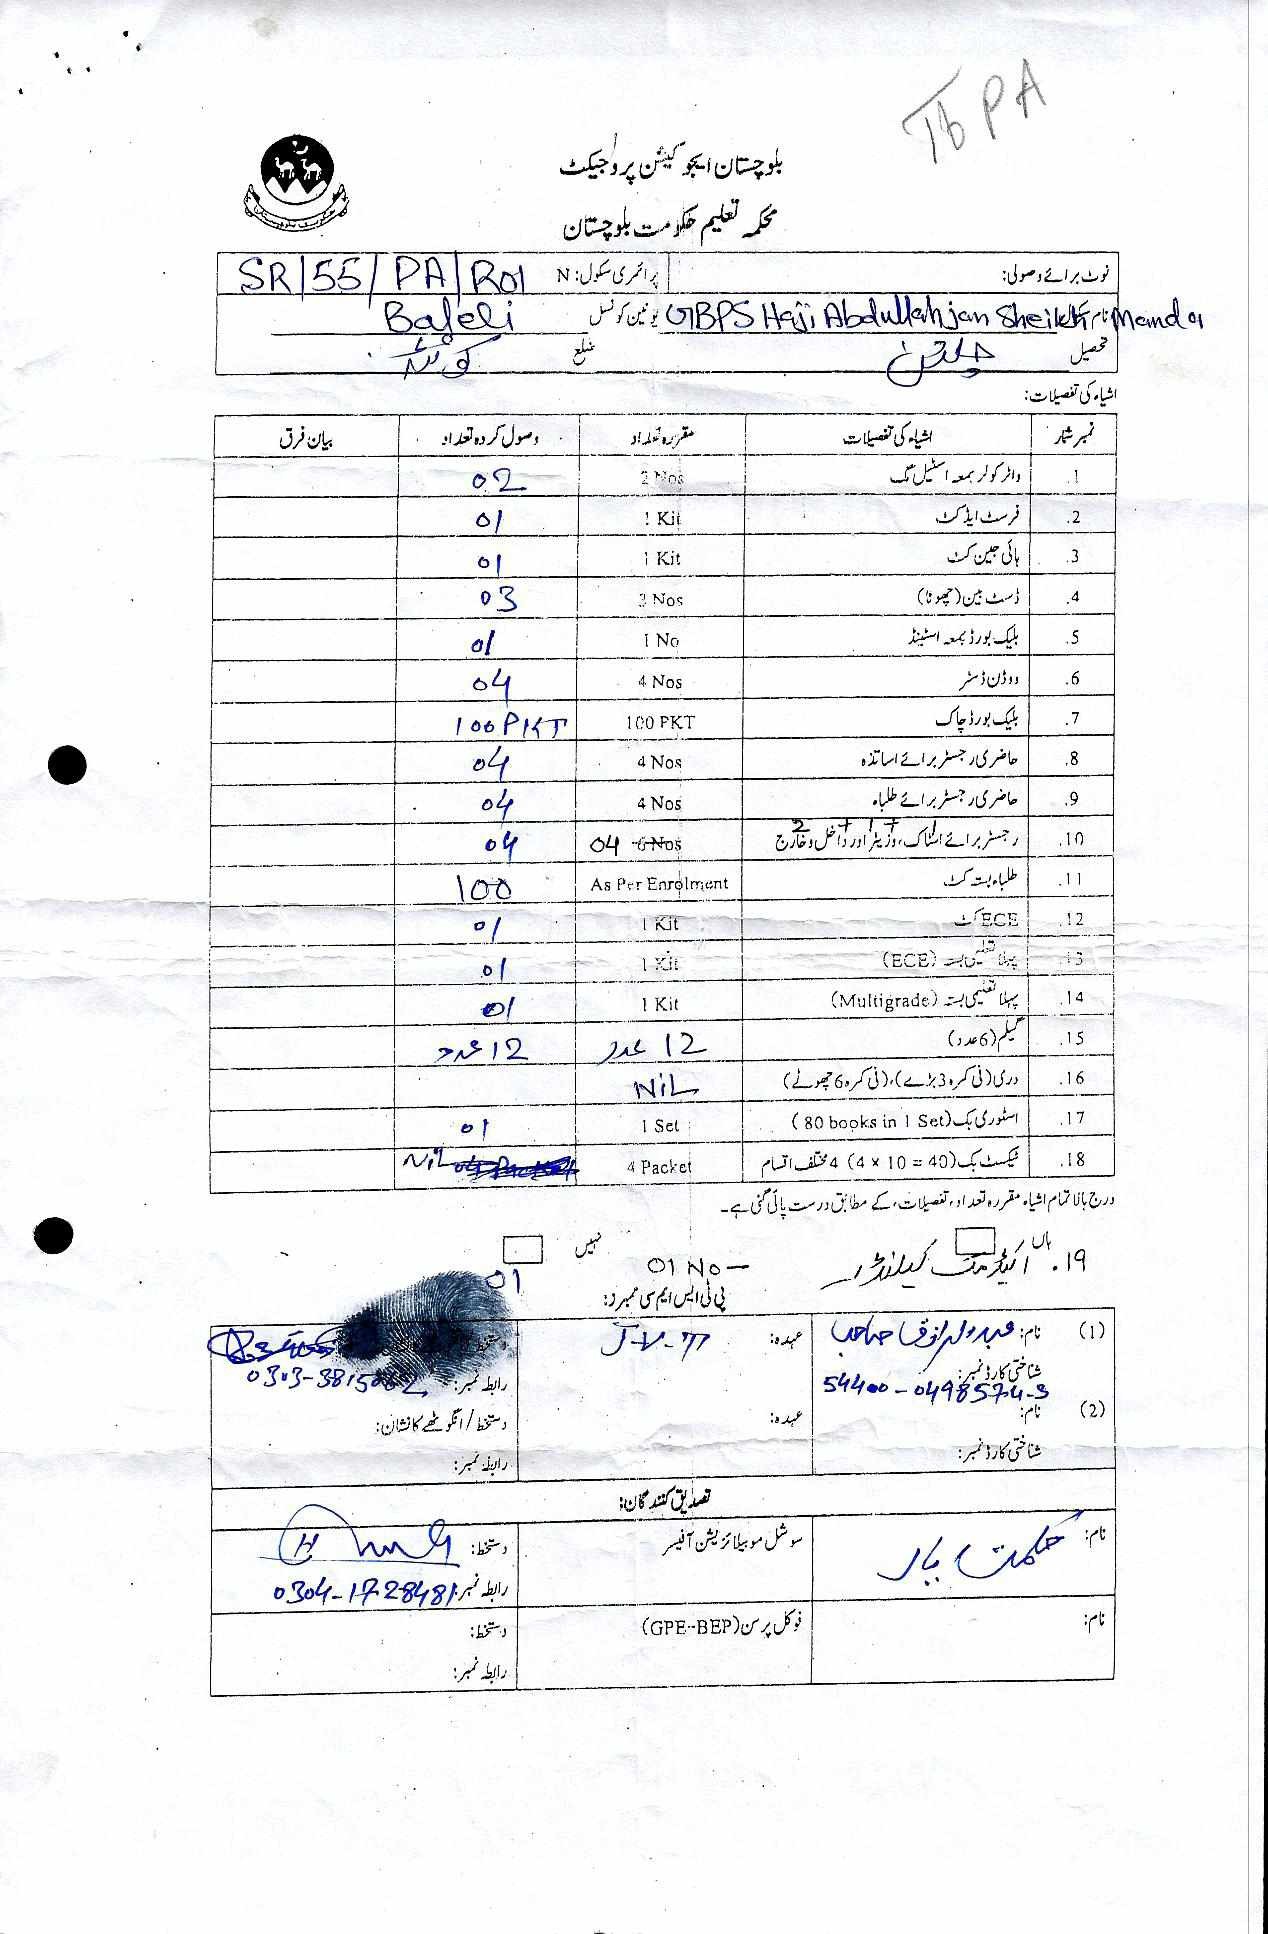 Tb PA
بلوچستان ایجوکیشن پروجیکٹ
محکمہ تعلیم حکومت بلوچستان
نوٹ برائے وصولی: پرائمری سکول: N SR/55/PA/R01
نام سکول GBPS Haji Abdullah jan Sheikh Manda یونین کونسل Baleli
تحصیل چلتن ضلع کوئٹہ
اشیاء کی تفصیلات:
نمبر شمار اشیاء کی تفصیلات مقررہ تعداد وصول کردہ تعداد بیان فرق
1. واٹر کولر بمعہ اسٹیل مگ 2 Nos 02
2. فرسٹ ایڈ کٹ 1 Kit 01
3. ہائی جین کٹ 1 Kit 01
4. ڈسٹ بین (چھوٹا) 3 Nos 03
5. بلیک بورڈ بمعہ اسٹینڈ 1 No 01
6. ووڈن ڈسٹر 4 Nos 04
7. بلیک بورڈ چاک 100 PKT 100 PKT
8. حاضری رجسٹر برائے اساتذہ 4 Nos 04
9. حاضری رجسٹر برائے طلباء 4 Nos 04
10. رجسٹر برائے اسٹاک، وزیٹر اور داخل و خارج 1+1+2 6 Nos 04 04
11. طلباء بستہ کٹ As Per Enrolment 100
12. ECE کٹ 1 Kit 01
13. پہلا تعلیمی بستہ (ECE) 1 Kit 01
14. پہلا تعلیمی بستہ (Multigrade) 1 Kit 01
15. گلیم (6 عدد) 12 عدد 12 عدد
16. دری (فی کمرہ 3 بڑے)، (فی کمرہ 6 چھوٹے) NiL
17. اسٹوری بک (80 books in 1 Set) 1 Set 01
18. ٹیکسٹ بک (4 x 10 = 40) 4 مختلف اقسام 4 Packet NiL 04 Packet
درج بالا تمام اشیاء مقررہ تعداد، تفصیلات، کے مطابق درست پائی گئی ہے۔
ہاں نہیں
19. اکیڈمک کیلنڈر 01 No 01
پی ٹی ایس ایم سی ممبرز:
(1) نام: عبدالرزاق صاحب عہدہ: J.V.T
شناختی کارڈ نمبر: 54400-0498574-3 رابطہ نمبر: 0303-3815062
(2) نام: عہدہ: دستخط / انگوٹھے کا نشان:
شناختی کارڈ نمبر: رابطہ نمبر:
تصدیق کنندگان:
نام: حکمت یار سوشل موبیلائزیشن آفیسر دستخط:
رابطہ نمبر: 0304-1728481
نام: فوکل پرسن (GPE-BEP) دستخط:
رابطہ نمبر: